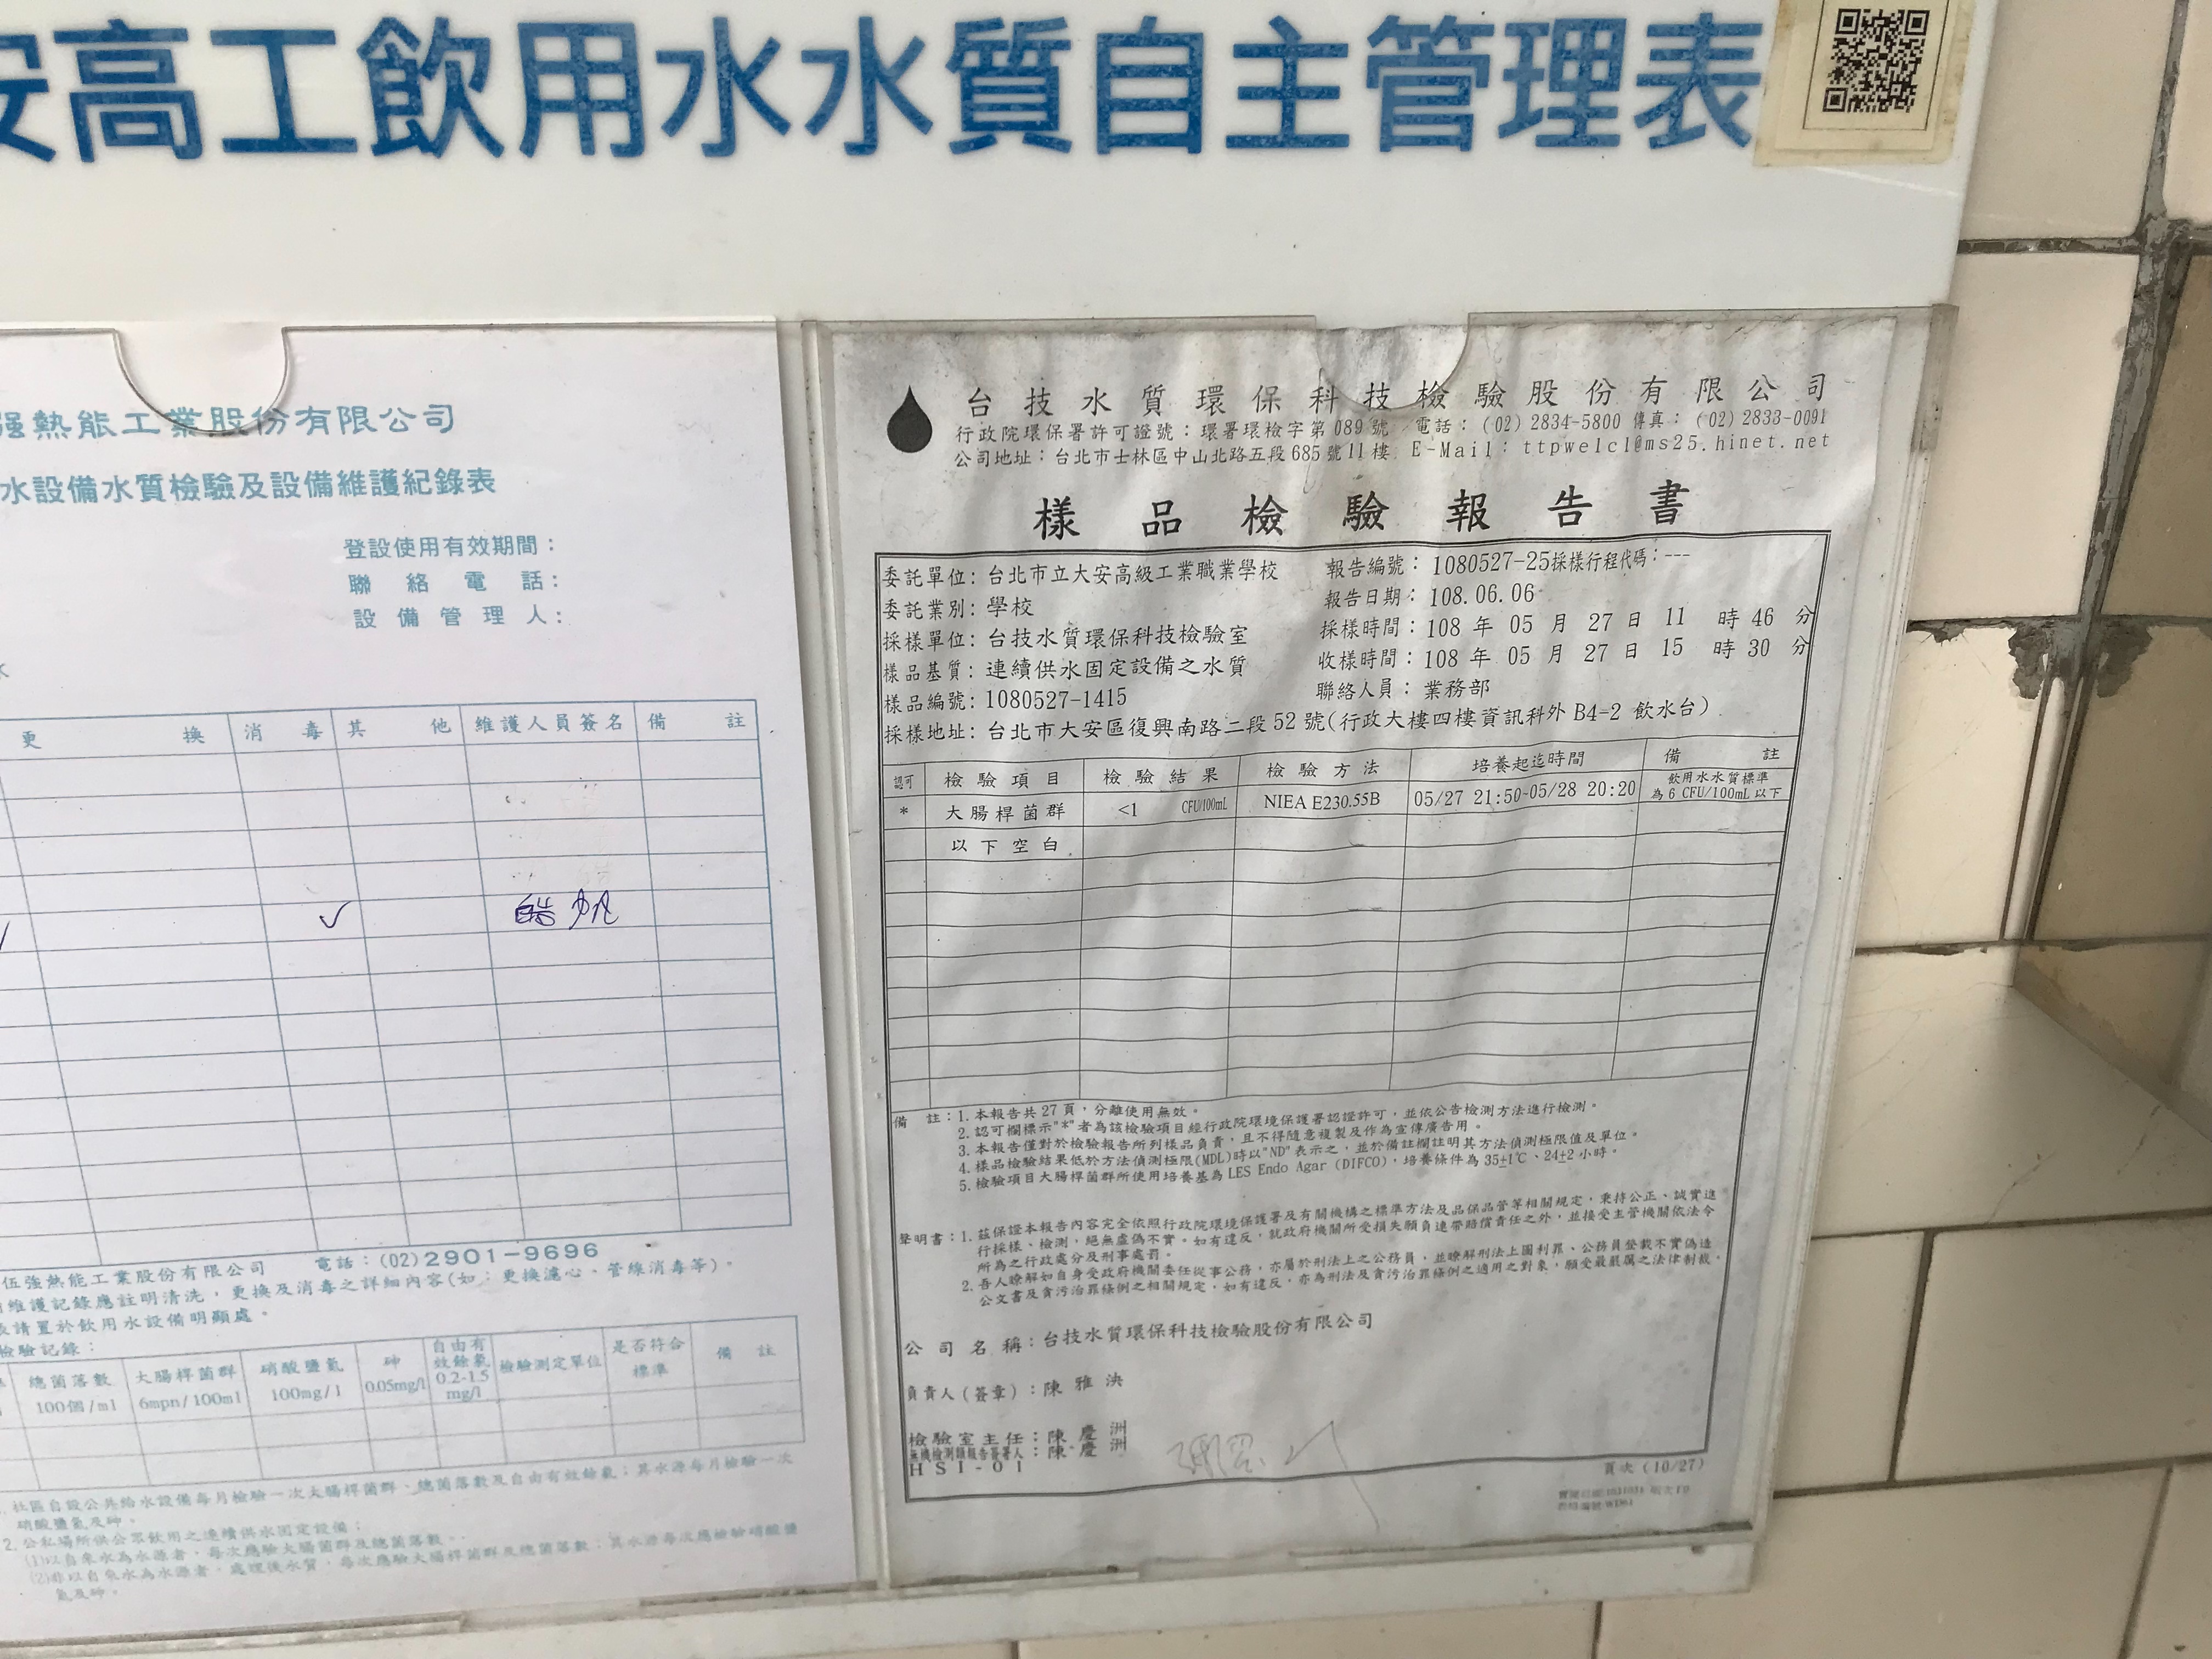 安高工飲用水水質自主管理表
强熱能工業股份有限公司
水設備水質檢驗及設備維護紀錄表
登設使用有效期間：
聯絡電話：
設備管理人：
更換 消毒 其他 維護人員簽名 備註
✓
電話：(02)2901-9696
伍強熱能工業股份有限公司
維護記錄應註明清洗，更換及消毒之詳細內容(如：更換濾心、管線消毒等)。
請置於飲用水設備明顯處。
檢驗記錄：
總菌落數 100個/ml 大腸桿菌群 6mpn/100ml 硝酸鹽氮 100mg/l 砷 0.05mg/l 自由有效餘氯 0.2-1.5 mg/l 檢驗測定單位 是否符合標準 備註
社區自設公共給水設備每月檢驗一次大腸桿菌群、總菌落數及自由有效餘氯；其水源每月檢驗一次
硝酸鹽氮及砷。
2.公私場所供公眾飲用之連續供水固定設備；
(1)以自來水為水源者，每次應驗大腸桿菌群及總菌落數..
(2)非以自來水為水源者，處理後水質，每次應驗大腸桿菌群及總菌落數；其水源每次應檢驗硝酸鹽
氮及砷。
台技水質環保科技檢驗股份有限公司
行政院環保署許可證號：環署環檢字第089號 電話：(02)2834-5800 傳真：(02)2833-0091
公司地址：台北市士林區中山北路五段685號11樓 E-Mail：ttpwelcl@ms25.hinet.net
樣品檢驗報告書
委託單位：台北市立大安高級工業職業學校 報告編號：1080527-25採樣行程代碼：---
委託業別：學校 報告日期：108.06.06
採樣單位：台技水質環保科技檢驗室 採樣時間：108 年 05 月 27 日 11 時 46 分
樣品基質：連續供水固定設備之水質 收樣時間：108 年 05 月 27 日 15 時 30 分
樣品編號：1080527-1415 聯絡人員：業務部
採樣地址：台北市大安區復興南路二段52號(行政大樓四樓資訊科外 B4-2 飲水台)
認可 檢驗項目 檢驗結果 檢驗方法 培養起迄時間 備註
* 大腸桿菌群 <1 CFU/100mL NIEA E230.55B 05/27 21:50~05/28 20:20 飲用水水質標準為6 CFU/100mL以下
以下空白
備註：1.本報告共27頁，分離使用無效。
2.認可欄標示"*"者為該檢驗項目經行政院環境保護署認證許可，並依公告檢測方法進行檢測。
3.本報告僅對於檢驗報告所列樣品負責，且不得隨意複製及作為宣傳廣告用。
4.樣品檢驗結果低於方法偵測極限(MDL)時以"ND"表示之，並於備註欄註明其方法偵測極限值及單位。
5.檢驗項目大腸桿菌群所使用培養基為 LES Endo Agar (DIFCO)，培養條件為 35±1℃、24±2小時。
聲明書：1.茲保證本報告內容完全依照行政院環境保護署及有關機構之標準方法及品保品管等相關規定，秉持公正、誠實進
行採樣、檢測，絕無虛偽不實。如有違反，就政府機關所受損失願負連帶賠償責任之外，並接受主管機關依法令
所為之行政處分及刑事處罰。
2.吾人瞭解如自身受政府機關委任從事公務，亦屬於刑法上之公務員，並瞭解刑法上圖利罪、公務員登載不實偽造
公文書及貪污治罪條例之相關規定，如有違反，亦為刑法及貪污治罪條例之適用之對象，願受最嚴厲之法律制裁。
公司名稱：台技水質環保科技檢驗股份有限公司
負責人(簽章)：陳雅泱
檢驗室主任：陳慶洲
無機檢測類報告簽署人：陳慶洲
HSI-01
頁次(10/27)